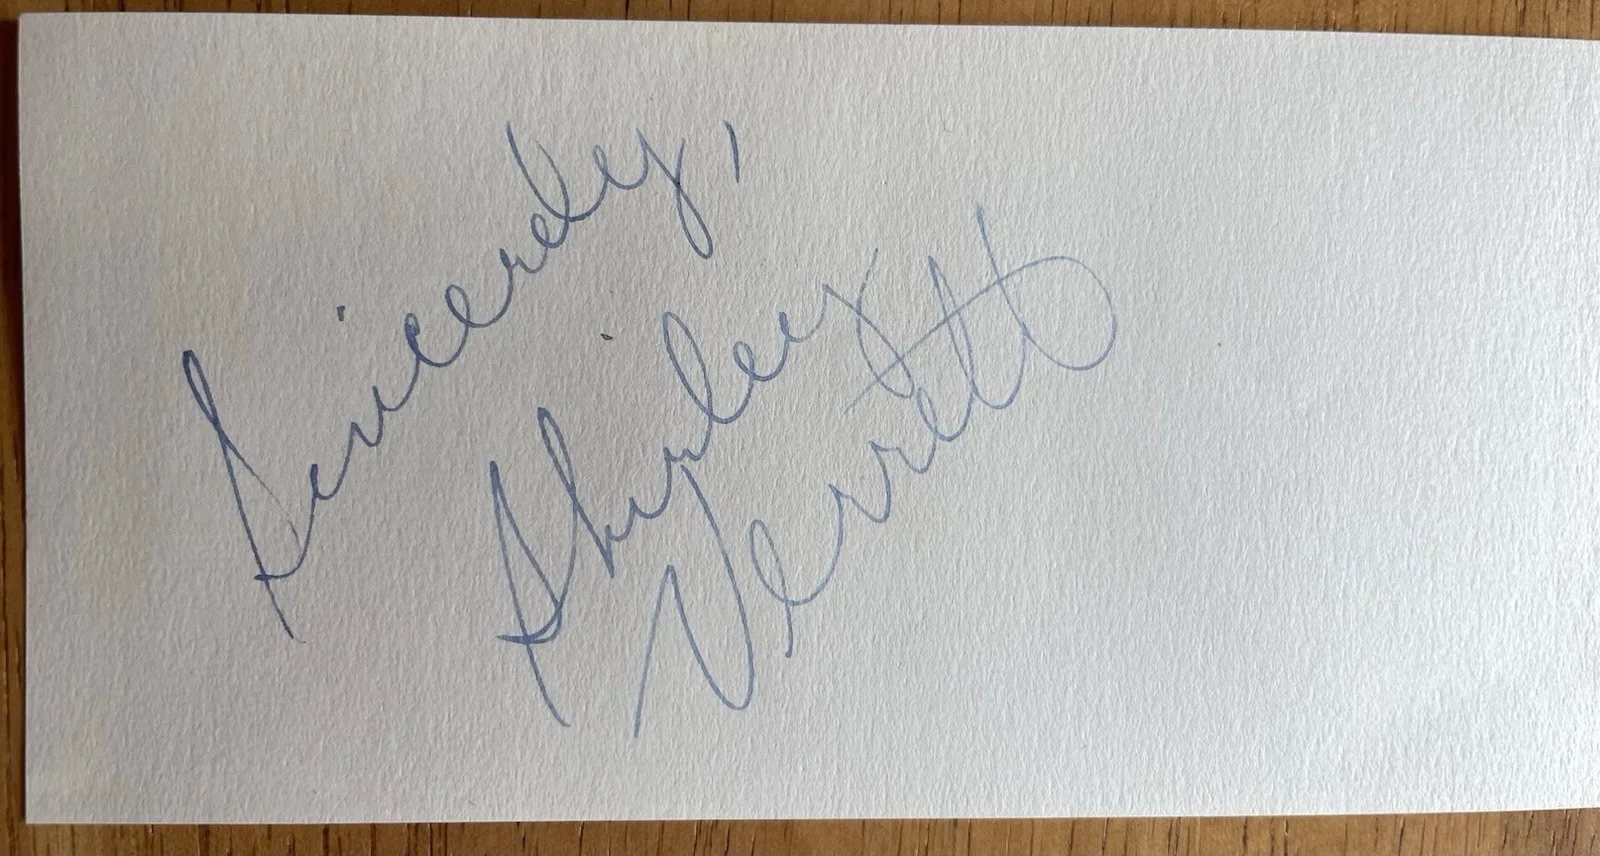 Sincerely,
Shirley
Verrett